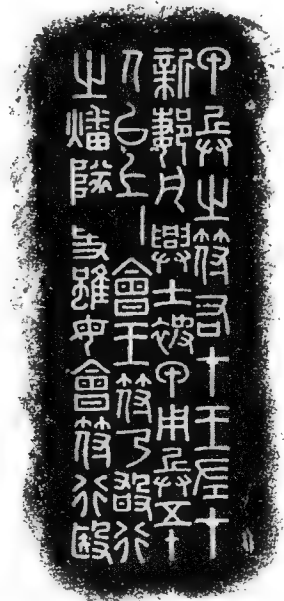 甲兵之符右才王左才
新郪凡興士被甲用兵五十
人以上會王符乃敢行
之燔隊事雖母會符行殹